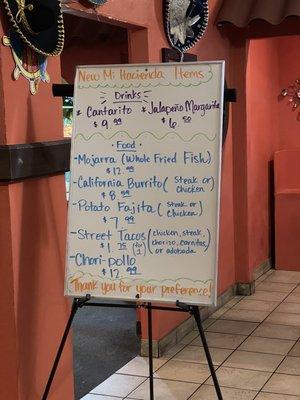 New Mi Hacienda Items:
Drinks
* Cantarito * Jalapeño Margarita
$9.99 $6.50
Food
- Mojarra (Whole Fried Fish)
$12.99
- California Burrito (Steak or chicken)
$8.99
- Potato Fajita (Steak or chicken)
$7.99
- Street Tacos (chicken, steak, chorizo, carnitas, or adobada)
$1.75 (for 1)
- Chori-pollo
$12.99
Thank you for dining with us!